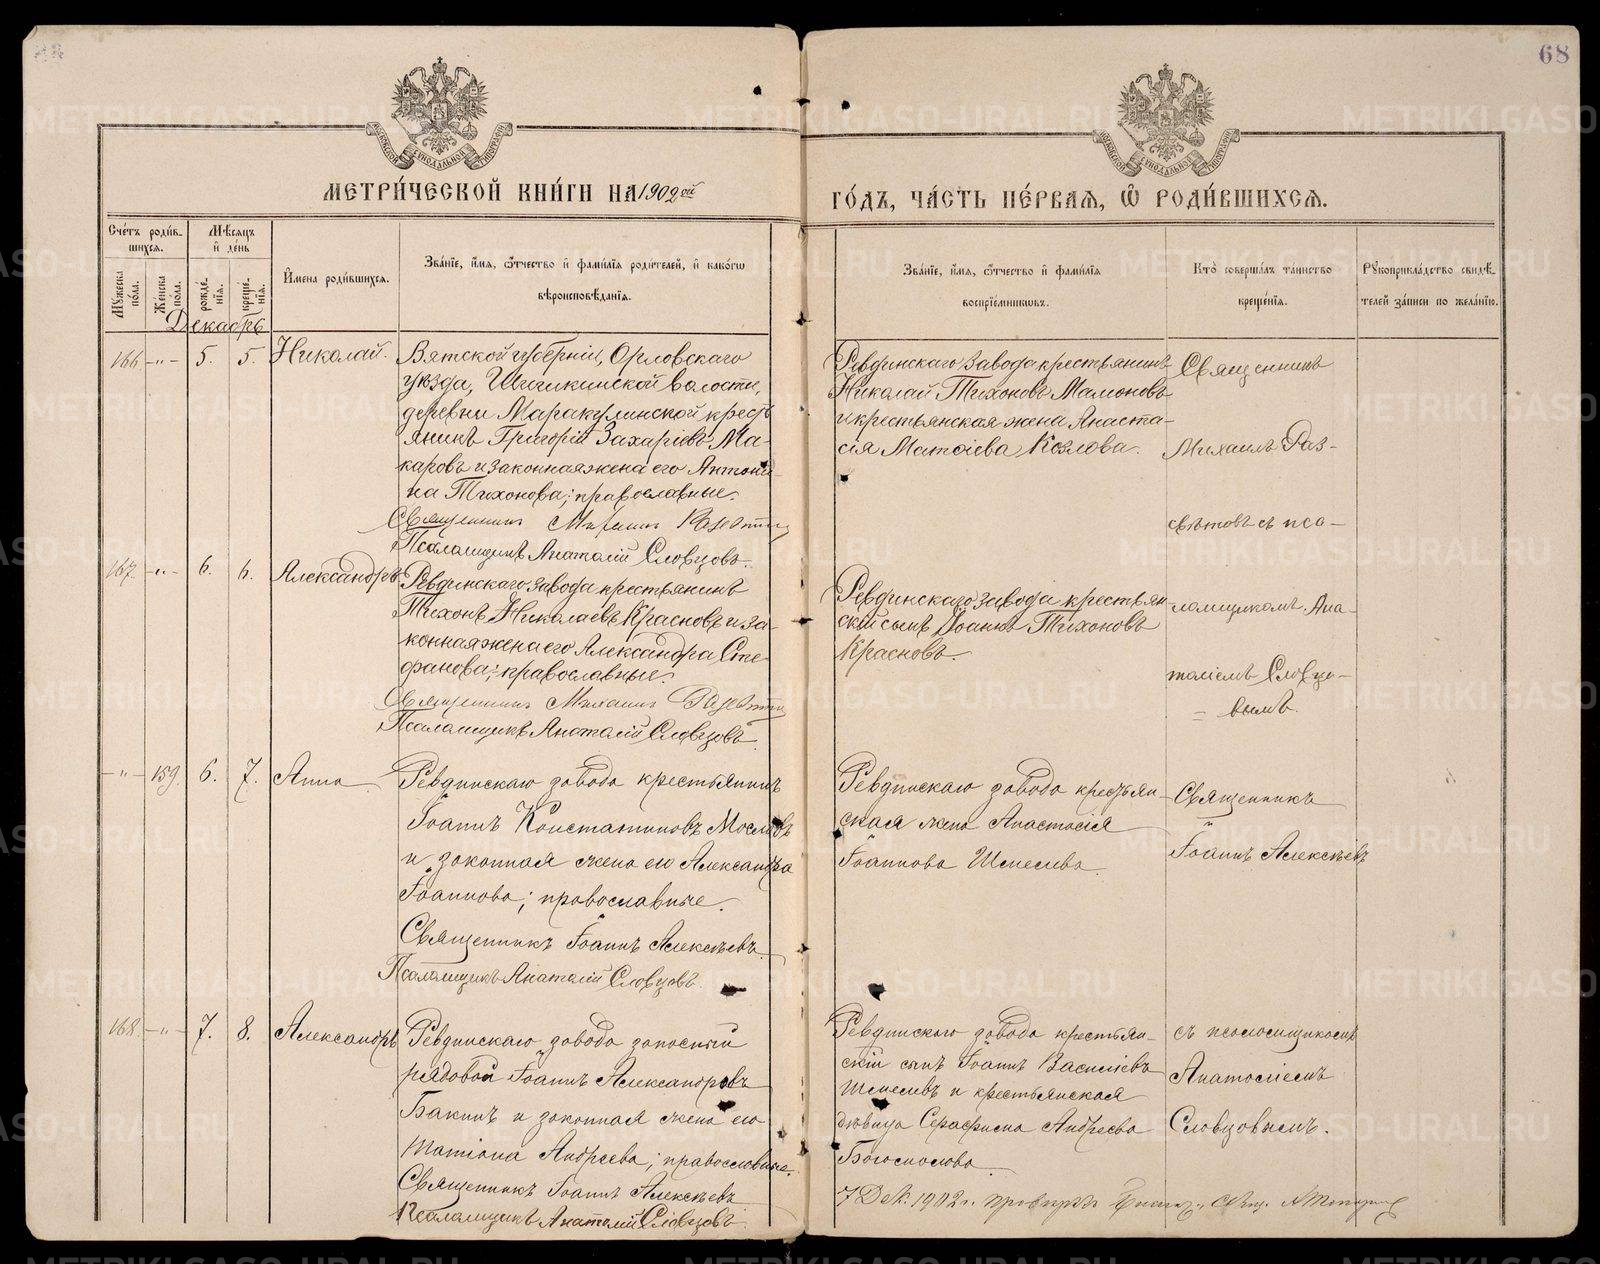 68
МОСКОВСКОЙ СѴНОДАЛЬНОЙ ТИПОГРАФІИ
МОСКОВСКОЙ СѴНОДАЛЬНОЙ ТИПОГРАФІИ
МЕТРИ́ЧЕСКОЙ КНИ́ГИ НА 1902ой
ГО́ДЪ, ЧА́СТЬ ПЕ́РВАѦ, Ѽ РОДИ́ВШИХСѦ.
Сче́тъ роди́в-
шихсѧ.
Мѣ́сѧцъ
и҆ де́нь
Мꙋ́жеска по́ла.
Же́нска по́ла.
рожде́-
нїѧ.
креще́-
нїѧ.
И҆мена роди́вшихсѧ.
Зва́нїе, и҆́мѧ, ѻ҆́тчество и҆ фами́лїѧ роди́телей, и҆ како́гѡ
вѣроисповѣ́данїѧ.
Зва́нїе, и҆́мѧ, ѻ҆́тчество и҆ фами́лїѧ
воспрїе́мникѡвъ.
Кто̀ соверша́лъ та́инство
креще́нїѧ.
Рꙋкоприкла́дство свидѣ́-
телей за́писи по жела́нїю.
Декабрь
166 -"- 5. 5. Николай.
Вятской губерніи, Орловскаго
уѣзда, волости,
деревни Маракулинской кресть
янинъ Григорій Захаріевъ Ма-
каровъ и законная жена его Антони
на Тихонова; православные.
Священникъ Михаилъ Разсвѣтовъ
Псаломщикъ Анатолій Словцовъ.
Ревдинскаго завода крестьянинъ
Николай Тихоновъ Мамоновъ
и крестьянская жена Анаста-
сія Матѳіева Козлова.
Священникъ
Михаилъ Раз-
свѣтовъ съ пса-
ломщикомъ Ана-
толіемъ Словцо-
вымъ.
167. -"- 6. 6. Александръ
Ревдинскаго завода крестьянинъ
Тихонъ Николаевъ Красновъ и за-
конная жена его Александра Сте-
фанова; православные.
Священникъ Михаилъ Разсвѣтовъ
Псаломщикъ Анатолій Словцовъ.
Ревдинскаго завода крестьян-
скій сынъ Іоаннъ Тихоновъ
Красновъ.
-"- 159. 6. 7. Анна
Ревдинскаго завода крестьянинъ
Іоаннъ Константиновъ Масловъ
и законная жена его Александра
Іоаннова; православные.
Священникъ Іоаннъ Алексѣевъ
Псаломщикъ Анатолій Словцовъ.
Ревдинскаго завода крестьян-
ская жена Анастасія
Іоаннова Шмелева.
Священникъ
Іоаннъ Алексѣевъ
съ псаломщикомъ
Анатоліемъ
Словцовымъ.
168. -"- 7. 8. Александръ
Ревдинскаго завода запасный
рядовой Іоаннъ Александровъ
Бакинъ и законная жена его
Татіана Андреева; православные.
Священникъ Іоаннъ Алексѣевъ
Псаломщикъ Анатолій Словцовъ.
Ревдинскаго завода крестьян-
скій сынъ Іоаннъ Василіевъ
Шмелевъ и крестьянская
дѣвица Серафима Андреева
Богомолова.
7 Дек. 1902 г.
METRIKI.GASO-URAL.RU